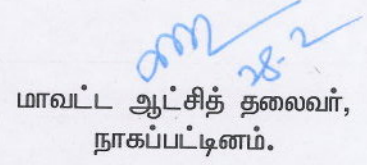 28-2
மாவட்ட ஆட்சித் தலைவர்,
நாகப்பட்டினம்.